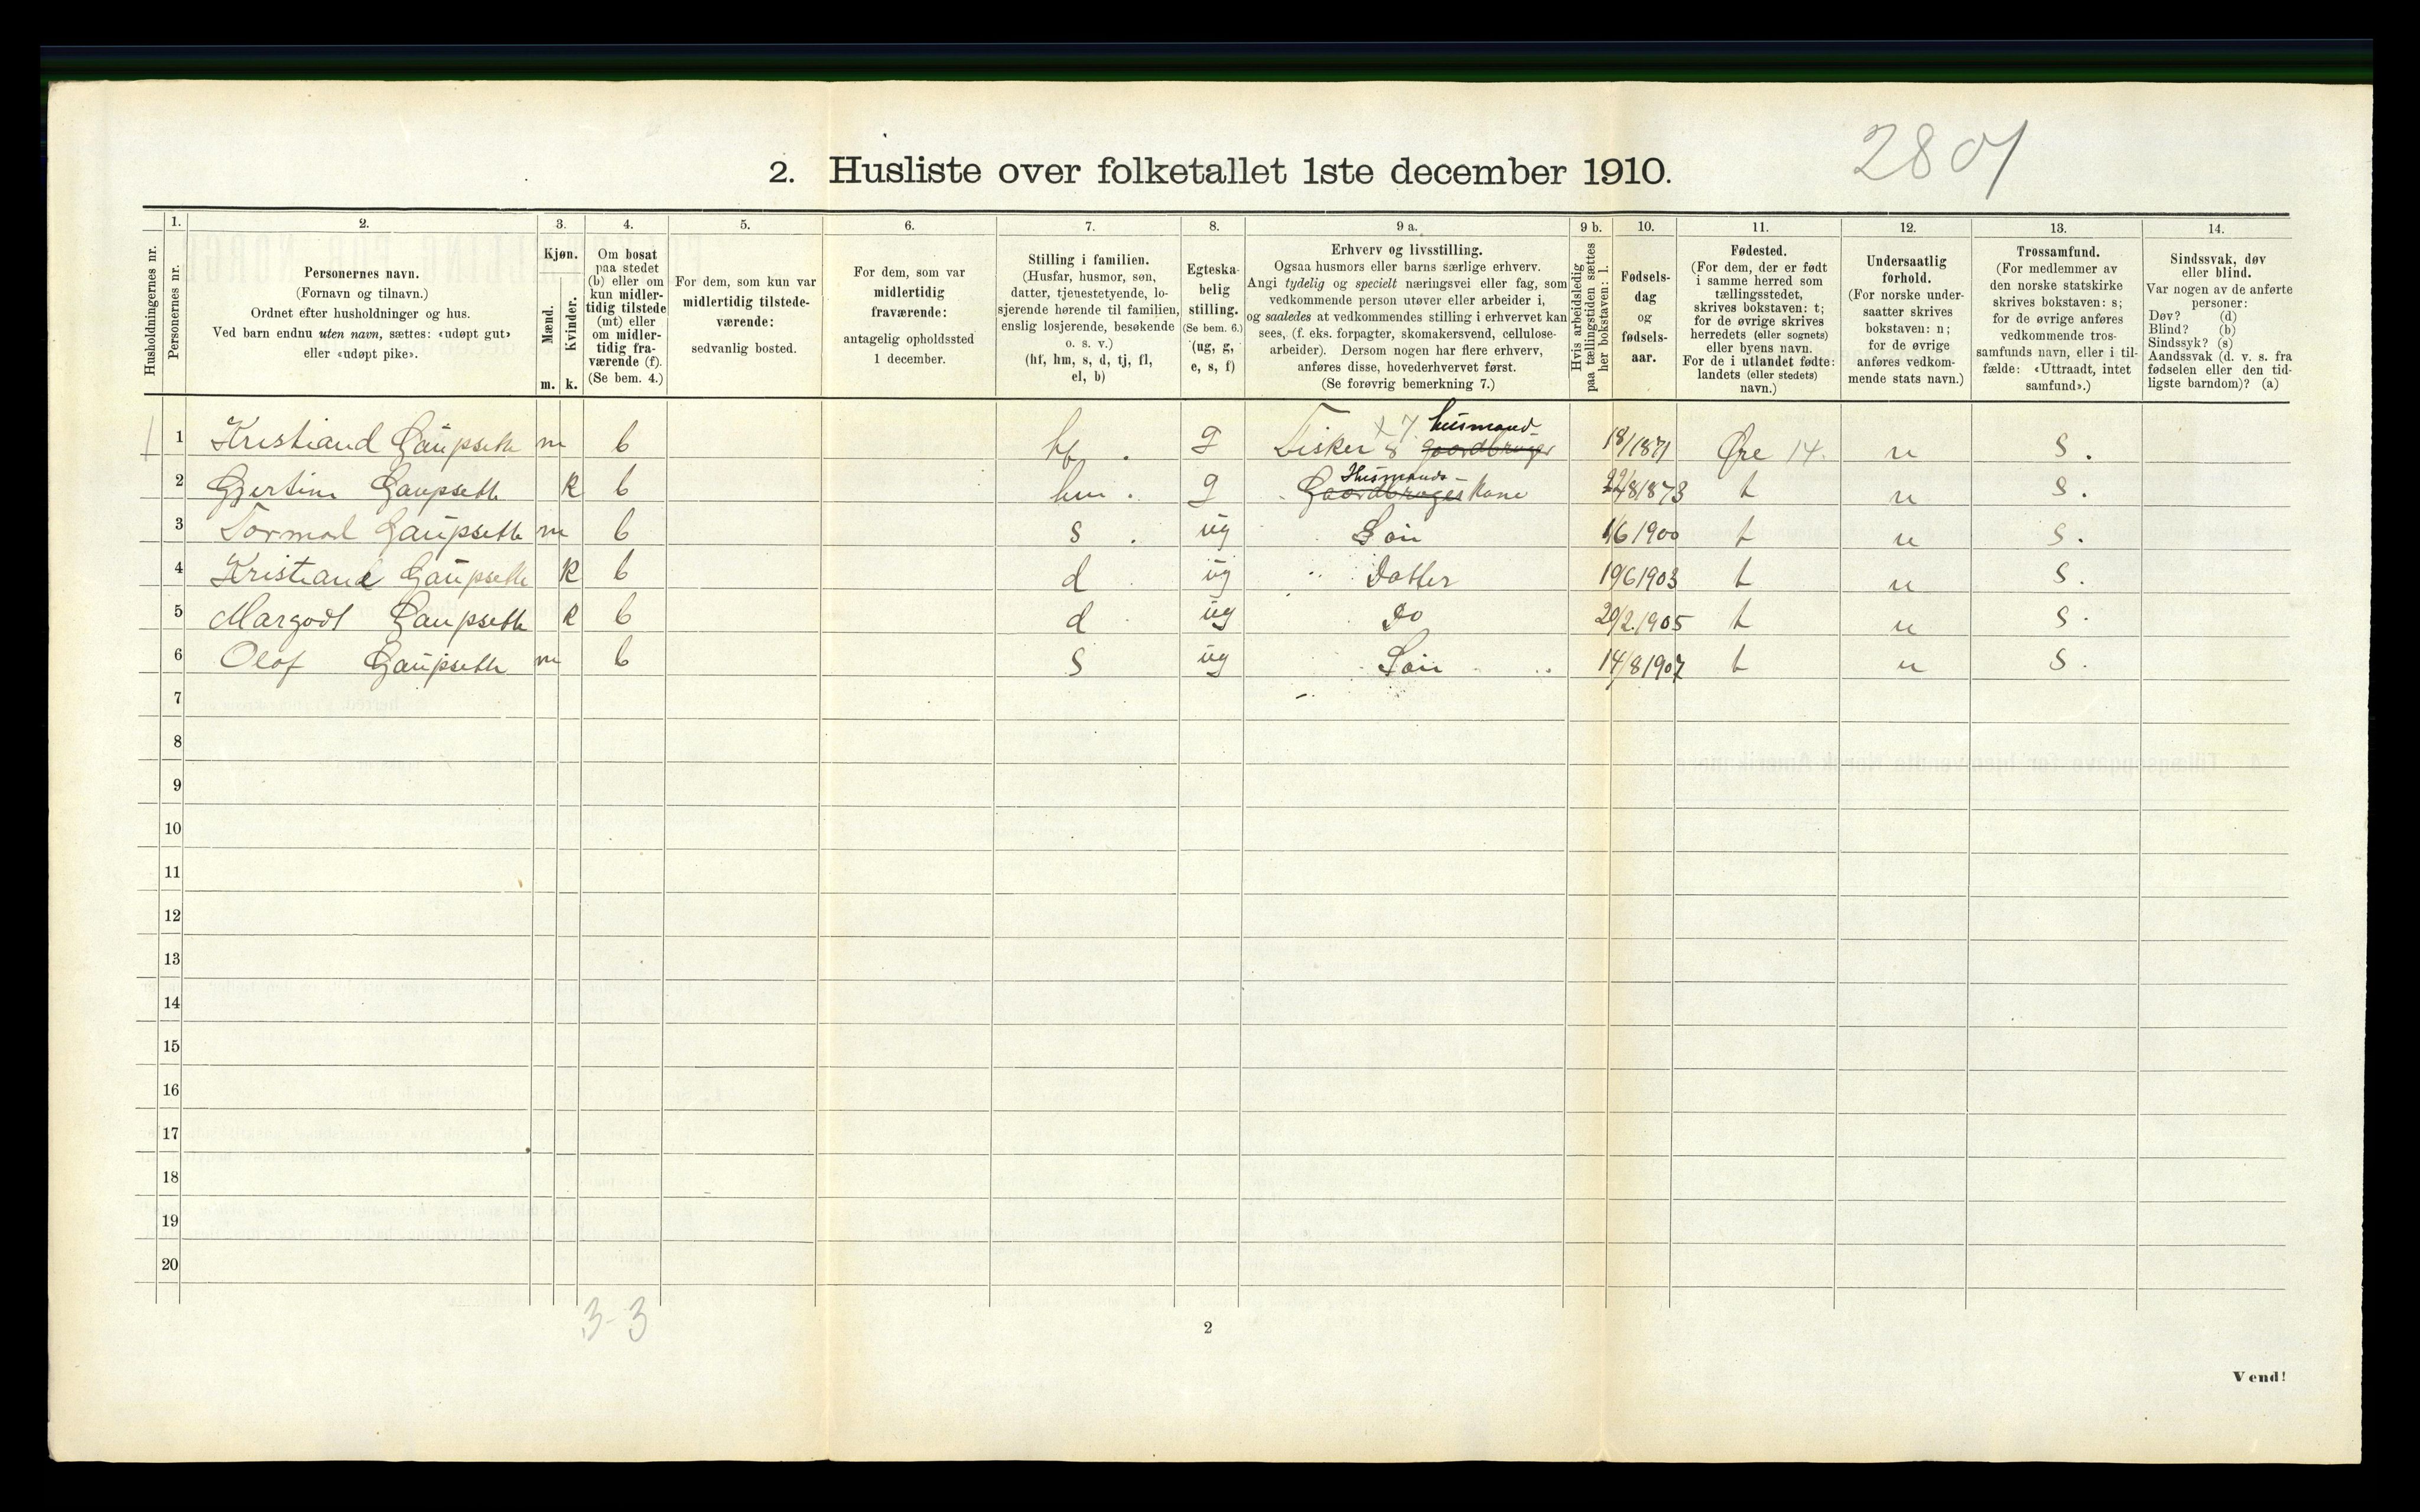 2801
2. Husliste over folketallet 1ste december 1910.
Husholdningernes nr.
1.
Personernes nr.
2.
Personernes navn.
(Fornavn og tilnavn.)
Ordnet efter husholdninger og hus.
Ved barn endnu uten navn, sættes: «udøpt gut»
eller «udøpt pike».
3.
Kjøn.
Mænd.
Kvinder.
m. k.
4.
Om bosat
paa stedet
(b) eller om
kun midler-
tidig tilstede
(mt) eller
om midler-
tidig fra-
værende (f).
(Se bem. 4.)
5.
For dem, som kun var
midlertidig tilstede-
værende:
sedvanlig bosted.
6.
For dem, som var
midlertidig
fraværende:
antagelig opholdssted
1 december.
7.
Stilling i familien.
(Husfar, husmor, søn,
datter, tjenestetyende, lo-
sjerende hørende til familien,
enslig losjerende, besøkende
o. s. v.)
(hf, hm, s, d, tj, fl,
el, b)
8.
Egteska-
belig
stilling.
(Se bem. 6.)
(ug, g,
e, s, f)
9 a.
Erhverv og livsstilling.
Ogsaa husmors eller barns særlige erhverv.
Angi tydelig og specielt næringsvei eller fag, som
vedkommende person utøver eller arbeider i,
og saaledes at vedkommendes stilling i erhvervet kan
sees, (f. eks. forpagter, skomakersvend, cellulose-
arbeider). Dersom nogen har flere erhverv,
anføres disse, hovederhvervet først.
(Se forøvrig bemerkning 7.)
9 b.
Hvis arbeidsledig
paa tællingstiden sættes
her bokstaven: l.
10.
Fødsels-
dag
og
fødsels-
aar.
11.
Fødested.
(For dem, der er født
i samme herred som
tællingsstedet,
skrives bokstaven: t;
for de øvrige skrives
herredets (eller sognets)
eller byens navn.
For de i utlandet fødte:
landets (eller stedets)
navn.)
12.
Undersaatlig
forhold.
(For norske under-
saatter skrives
bokstaven: n;
for de øvrige
anføres vedkom-
mende stats navn.)
13.
Trossamfund.
(For medlemmer av
den norske statskirke
skrives bokstaven: s;
for de øvrige anføres
vedkommende tros-
samfunds navn, eller i til-
fælde: «Uttraadt, intet
samfund».)
14.
Sindssvak, døv
eller blind.
Var nogen av de anførte
personer:
Døv? (d)
Blind? (b)
Sindssyk? (s)
Aandssvak (d. v. s. fra
fødselen eller den tid-
ligste barndom)? (a)
husmand
1 Kristiand Gaupseth m b hf. g Fisker & gaardbruger 1871 Øre 14. n S.
Husmands
2 Gjertine Gaupseth k b hm. g Gaardbruges Kone 22/8 1873 t n S.
3 Tormod Gaupseth m b s. ug Søn 1/6 1900 t n S.
4 Kristiane Gaupseth k b d ug Datter 19/6 1903 t n S.
5 Margodt Gaupseth k b d ug Do 20/2.1905 t n S.
6 Olaf Gaupseth m b s ug Søn 14/8 1907 t n S.
7
8
9
10
11
12
13
14
15
16
17
18
19
20
3-3
2
Vend!